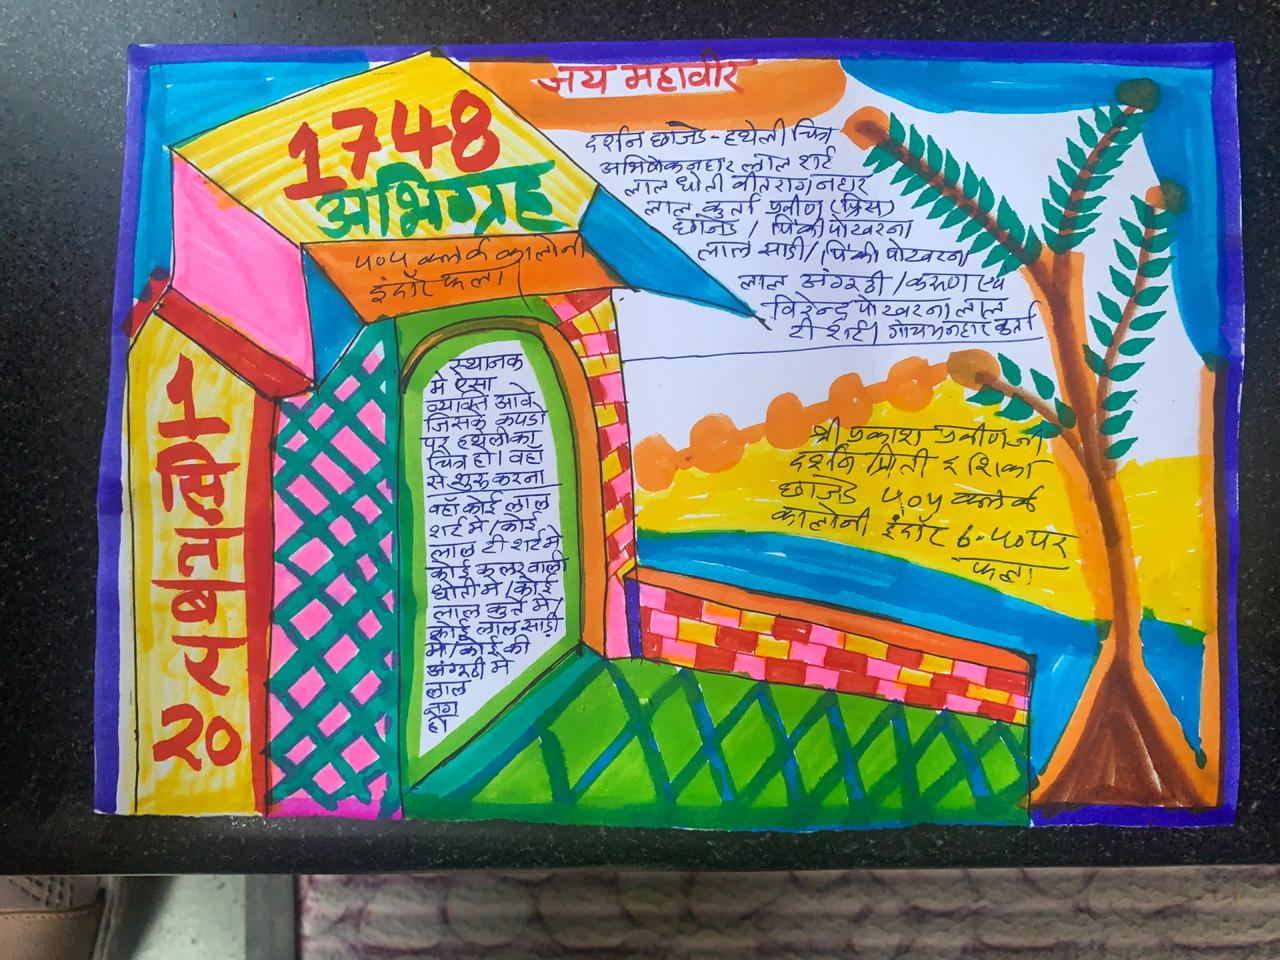 जय महावीर
1748
अभिग्रह
५०५ क्लर्क कालोनी
इंदौर फला
1
सितंबर
२०
दर्शन छाजेड - हथेली चित्र
अभिषेक नहार लाल शर्ट
लाल धोती वीतराग नहार
लाल कुर्ता प्रवीण (प्रिंस)
छाजेड / पिंकी पोखरना
लाल साडी / पिंकी पोखरना
लाल अंगूठी / करुण एवं
विरेन्द्र पोखरना लाल
टी शर्ट। गौयम नहार कुर्ता
स्थानक
मे ऐसा
व्यक्ति आवे
जिसके कपडो
पर हथेली का
चित्र हो। वहा
से शुरु करना
वहाँ कोई लाल
शर्ट मे / कोई
लाल टी शर्ट मे
कोई कलर वाली
धोती मे / कोई
लाल कुर्ते मे /
कोई लाल साड़ी
मे / कोई की
अंगूठी मे
लाल
नग
हो
श्री प्रकाश प्रवीण जी
दर्शन प्रिती इशिका
छाजेड ५०५ क्लर्क
कालोनी इंदौर ६.५० पर
फला